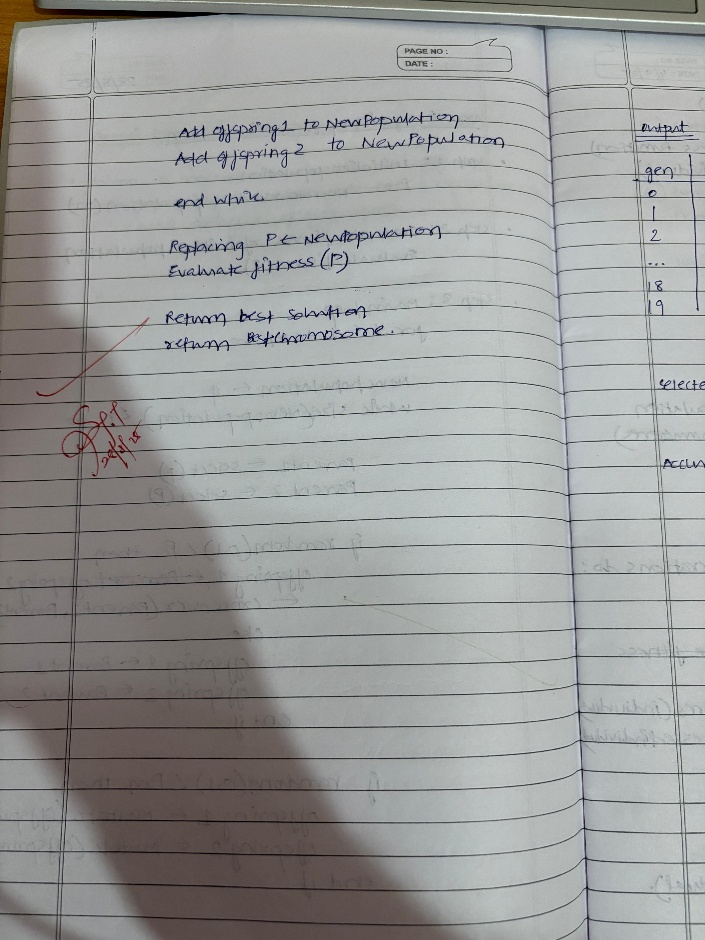 PAGE NO :
DATE :
Add offspring1 to NewPopulation
Add offspring2 to NewPopulation
end while
Replacing P ← NewPopulation
Evaluate fitness (P)
Return best solution
return Bestchromosome.
output
gen
0
1
2
...
18
19
selecte
Accu